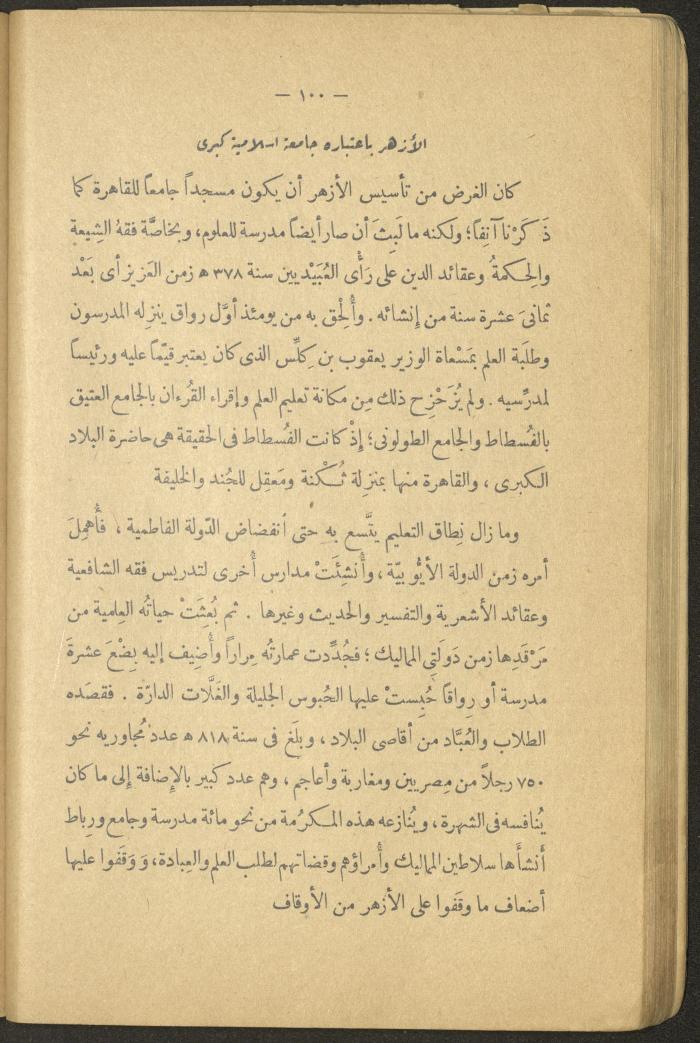 — ١٠٠ —
الأزهر باعتباره جامعة اسلامية كبرى
كان الغرض من تأسيس الأزهر أن يكون مسجداً جامعاً للقاهرة كما
ذَكَرْنا آنِفاً؛ ولكنه ما لَبِثَ أن صار أيضاً مدرسة للعلوم، وبخاصَّة فقهُ الشِيعةِ
والحِكمةُ وعقائد الدين على رَأْى العُبَيْديين سنة ٣٧٨ ﻫ زمن العَزيز أى بَعْدَ
ثمانىَ عشرة سنة من إنشائه . وأُلْحِق به من يومئذ أوّل رواق ينزله المدرسون
وطلَبَة العلم بمَسْعاة الوزير يعقوب بن كِلِّس الذى كان يعتبر قيّماً عليه ورئيساً
لمدرِّسيه . ولم يُزَحْزِح ذلك مِن مكانة تعليم العلم وإقراء القُرءان بالجامع العتيق
بالفُسطاط والجامع الطولونى؛ إذْ كانت الفُسطاط فى الحقيقة هى حاضرة البلاد
الكبرى ، والقاهرة منها بمنزلة ثُكْنة ومَعقِل للجُند والخليفة
وما زال نِطاق التعليم يتَّسع به حتى أنفضاض الدّولة الفاطمية ، فأُهمِلَ
أمره زمن الدولة الأيُّوبيّة ، وأُنشِئَتْ مدارس أُخرى لتدريس فقه الشافعية
وعقائد الأشعرية والتفسير والحديث وغيرها . ثم بُعِثَتْ حياتُه العِلمية من
مَرْقَدِها زمن دَولَتَىِ المماليك ؛ فجُدِّدت عمارتُه مِراراً وأُضِيف إليه بِضْعَ عشرةَ
مدرسة أو رِواقاً حُبِستْ عليها الحُبوس الجليلة والغَلَّات الدارّة . فقصَده
الطلاب والعُبَّاد من أقاصى البلاد ، وبلَغ فى سنة ٨١٨ ﻫ عدد مُجاوريه نحو
٧٥٠ رجلاً من مِصريين ومغاربة وأعاجم ، وهم عدد كبير بالإضافة إلى ما كان
يُنافسه فى الشهرة ، ويُنازعه هذه المكرُمة من نحو مائة مدرسة وجامع ورِباط
أَنشأَها سلاطين المماليك وأُمراؤهم وقضاتهم لطلب العلم والعِبادة، وَوَقَفوا عليها
أضعاف ما وقَفوا على الأزهر من الأوقاف